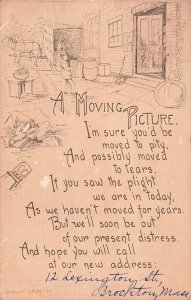 A MOVING PICTURE.
Im sure you'd be
moved to pity,
And possibly moved
to tears,
If you saw the plight
we are in today,
As we haven't moved for years.
But we'll soon be out
of our present distress,
And hope you will call
at our new address.
12 Lexington St,
Brockton, Mass